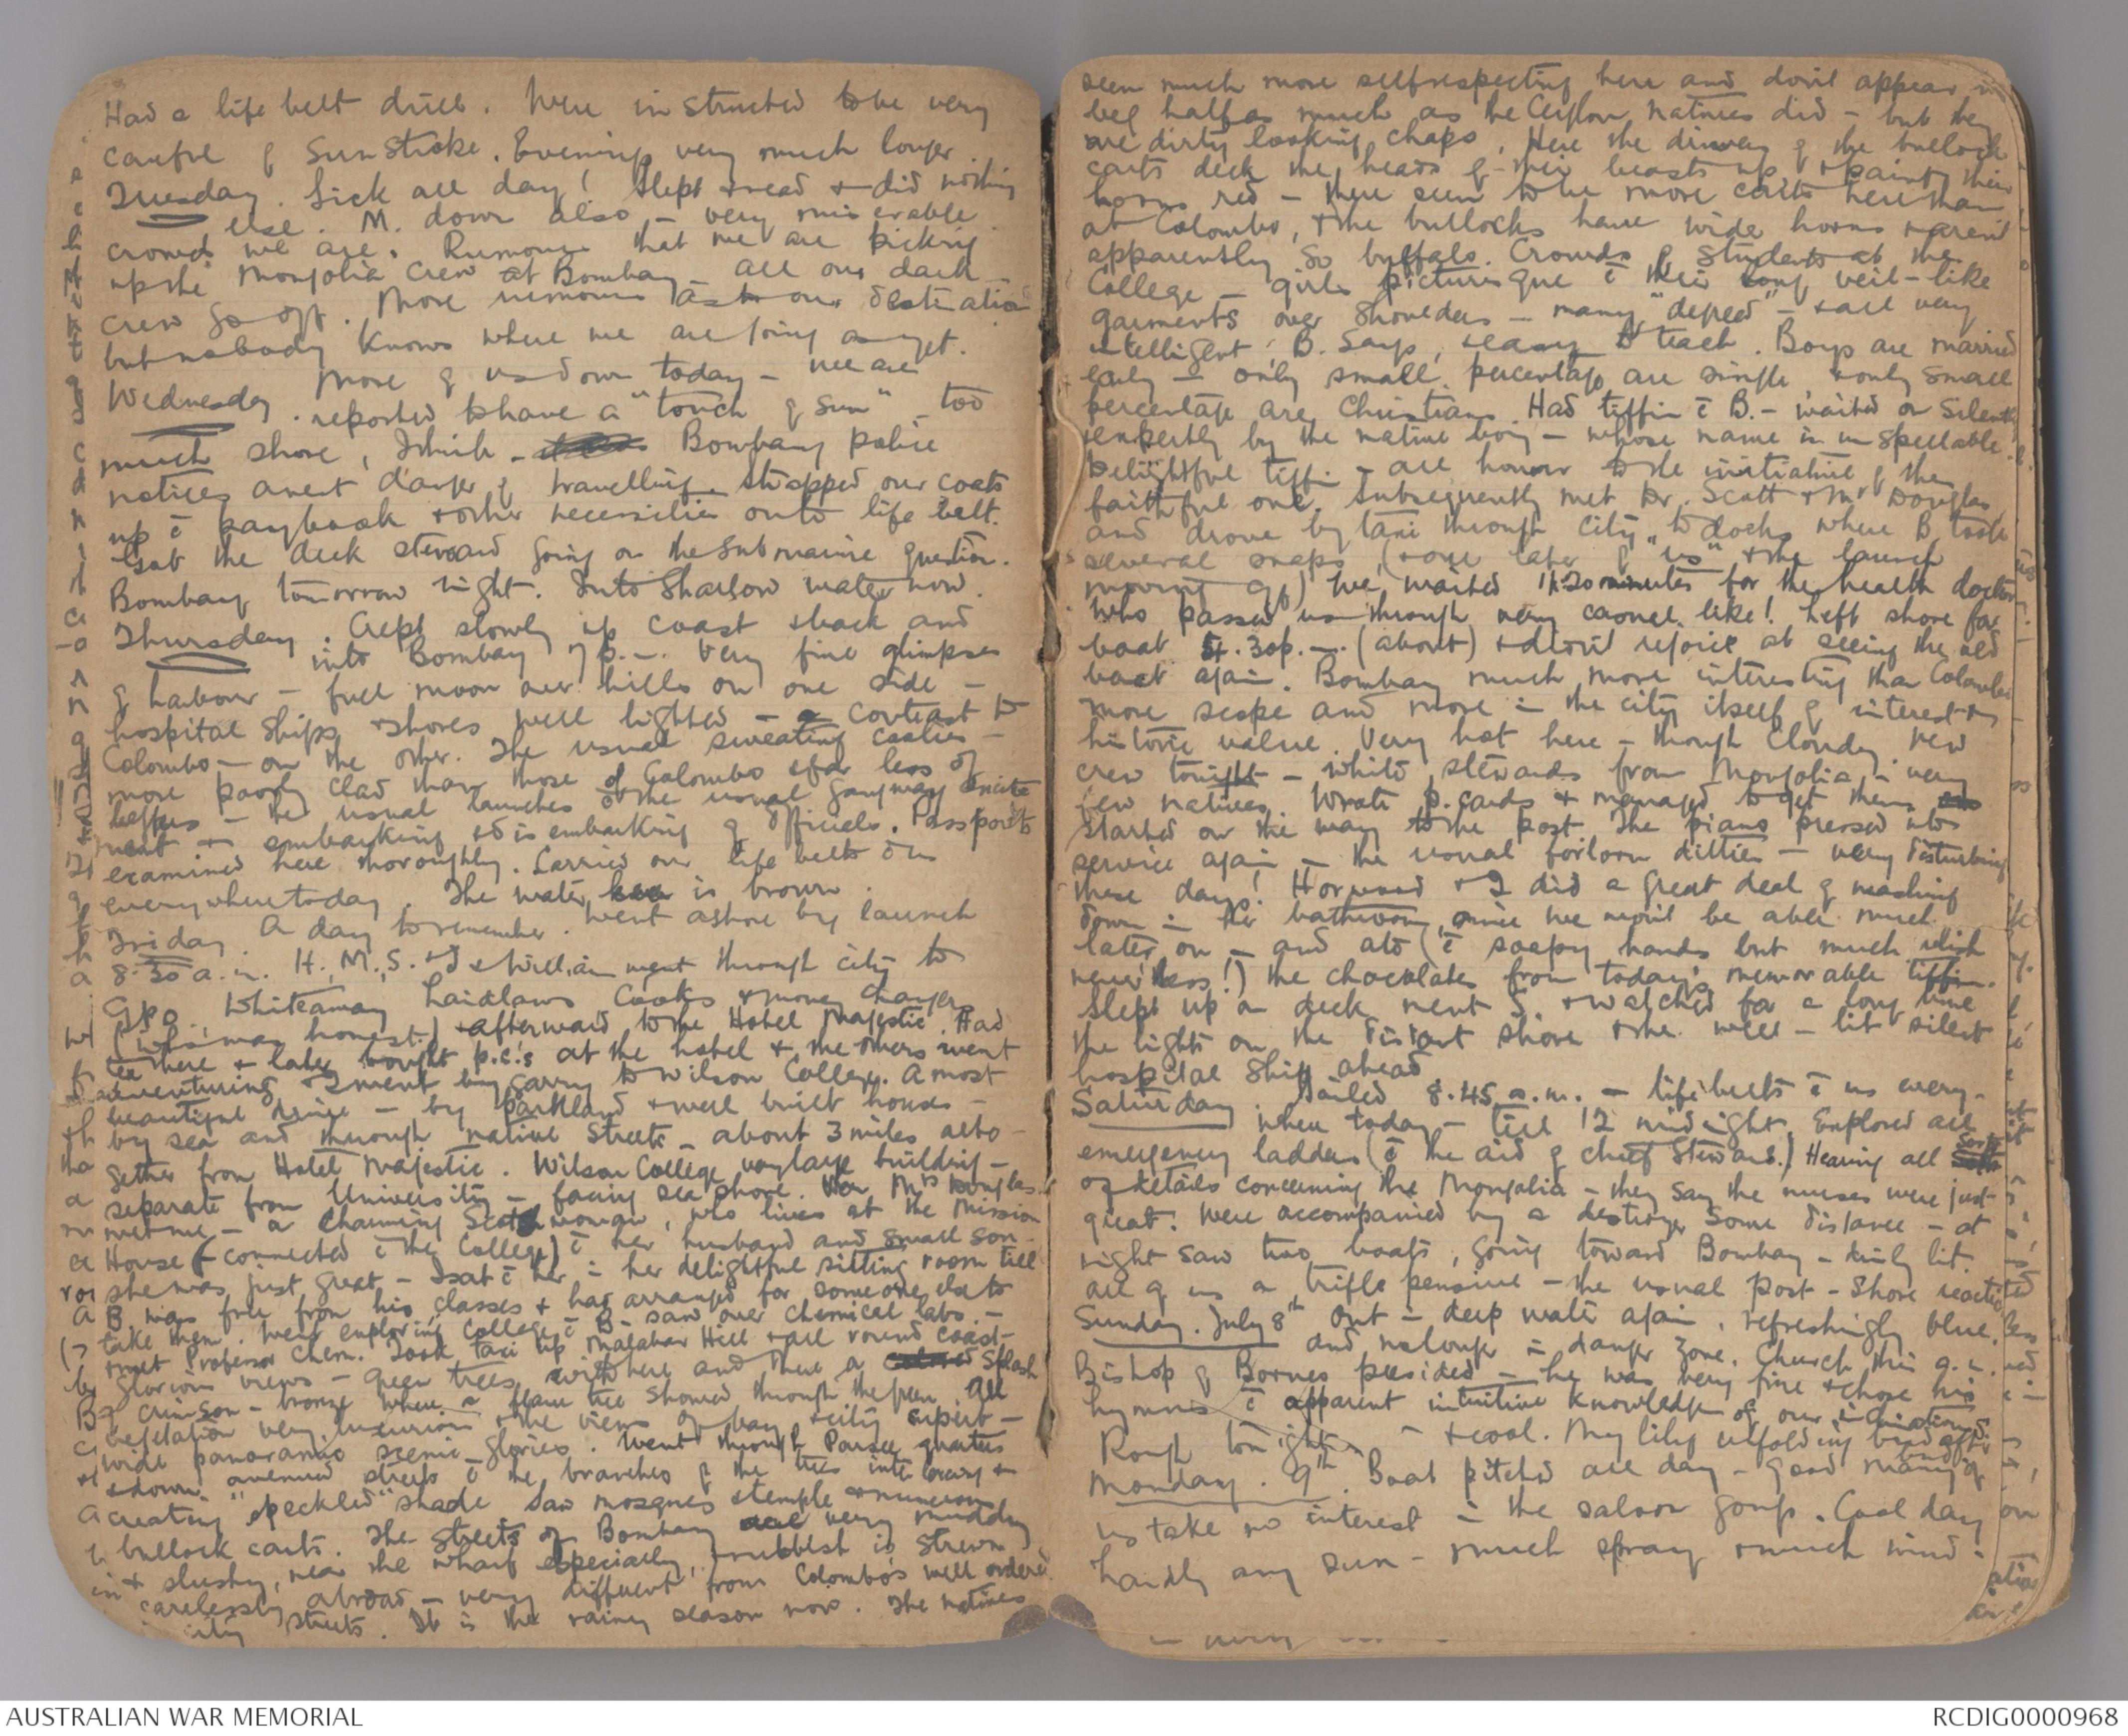 Had a life belt drill. Were instructed to be very
careful of Sunstroke. Evening very much longer
Tuesday. Sick all day! Slept & read & did nothing
else. M. down also – very miserable
crowd we are. Rumour that we are picking
up the Mongolia crew at Bombay – all our dark
crew go off. More rumours as to our destination
but nobody knows where we are going as yet.
Wednesday. More of us down today – we are
reported to have a "touch of sun" – too
much shore, I think – Bombay police
notices anent danger of travelling. Strapped our coats
up c̄ paybook & other necessities onto life belt.
Got the deck steward going on the Submarine question.
Bombay tomorrow night. Into Shallow water now.
Thursday. Crept slowly up coast & back and
into Bombay 7 p.m. Very fine glimpses
of harbour – full moon over hills on one side –
hospital ships & shores well lighted – a contrast to
Colombo – on the other. The usual sweating coolies –
more poorly clad than those of Colombo & far less of
beggars – the usual launches & the usual gangway excite
ment & embarking & disembarking of officials. Passports
examined here thoroughly. Carried our life belts c̄ us
everywhere today. The water is brown.
Friday. A day to remember. Went ashore by launch
8.30 a.m. H., M., S. & I & William went through city to
G.P.O. Whiteaway Laidlaws Cooks & money changers
(who was honest!) & afterward to the Hotel Majestic. Had
tea there & later bought p.c.'s at the hotel & the others went
adventuring & I went by garry to Wilson College. A most
beautiful drive – by parkland & well built houses –
by sea and through native streets – about 3 miles alto-
gether from Hotel Majestic. Wilson College very large building –
separate from University – facing sea shore. Mrs Douglas
met me – a charming Scotch woman, who lives at the Mission
House (connected c̄ the College) c̄ her husband and small son.
she was just great – I sat c̄ her in her delightful sitting room till
B was free from his classes & had arranged for someone else to
take them. Went exploring College c̄ B. saw over chemical labs. –
met Professor Chem. Took taxi up Malabar Hill & all round coast –
glorious views – green trees with here and there a splash
of crimson – bronze where a flame tree showed through the green. All
vegetation very luxurious & the views of bay & city superb –
wide panoramic scenic glories. Went through Parsee quarters
& down avenued streets c̄ the branches of the trees interlacing &
creating "speckled" shade Saw mosques & temple & numerous
bullock carts. The streets of Bombay very muddy
& slushy, near the wharf especially, & rubbish is strewn
carelessly abroad – very different from Colombo's well ordered
city streets. It is the rainy season now. The natives
seem much more selfrespecting here and don't appear to
beg half as much as the Ceylon natives did – but they
are dirty looking chaps. Here the drivers of the bullock
carts deck the heads of their beasts up & paint their
horns red – there seem to be more carts here than
at Colombo, & the bullocks have wide horns & aren't
apparently so buffalo. Crowds of Students at the
College – girls picturesque c̄ their long veil-like
garments over shoulders – many "degreed" – & all very
intelligent, B. says, & easy to teach. Boys are married
early – only small percentage are single & only small
percentage are Christians. Had tiffin c̄ B. – waited on silently
& expertly by the native boy – whose name is unspellable.
Delightful tiffin – all honour to the initiative of the
faithful one. Subsequently met Dr. Scott & Mr Douglas
and drove by taxi through city to docks where B. took
several snaps, (& one later of "us" & the launch
moving off) We waited 1 h 20 minutes for the health doctor
who passed us through very casual like! Left shore for
boat 5.30 p.m. (about) & didn't rejoice at seeing the old
boat again. Bombay much more interesting than Colombo
more scope and more in the city itself of interest &
historic value. Very hot here – though cloudy. New
crew tonight – white stewards from Mongolia – very
few natives. Wrote p.cards & managed to get them
started on the way to the post. The piano pressed into
service again – the usual forlorn ditties – very disturbing
these days! Horwood & I did a great deal of washing
down in the bathroom, since we won't be able much
later on – and ate (c̄ soapy hands but much relish
nevertheless!) the chocolates from today's memorable tiffin.
Slept up on deck next S & watched for a long time
the lights on the distant shore & the well-lit silent
hospital ship ahead.
Saturday. Sailed 8.45 a.m. – lifebelts c̄ us every-
where today – till 12 midnight. Explored all
emergency ladders (c̄ the aid of chief Steward.) Hearing all sorts
of details concerning the Mongolia – they say the nurses were just
great. Were accompanied by a destroyer some distance – at
night saw two boats, going toward Bombay – dimly lit.
all of us a trifle pensive – the usual post-shore reaction
Sunday. July 8th Out in deep water again, refreshingly blue,
and no longer in danger zone. Church this a.m.
Bishop of Borneo presided – he was very fine & chose his
hymns c̄ apparent intuitive knowledge of our inclinations.
Rough tonight – & cool. My lily unfolding bud after
bud
Monday. 9th. Boat pitched all day – good many of
us take no interest in the saloon gongs. Cool day
hardly any sun – much spray & much wind.